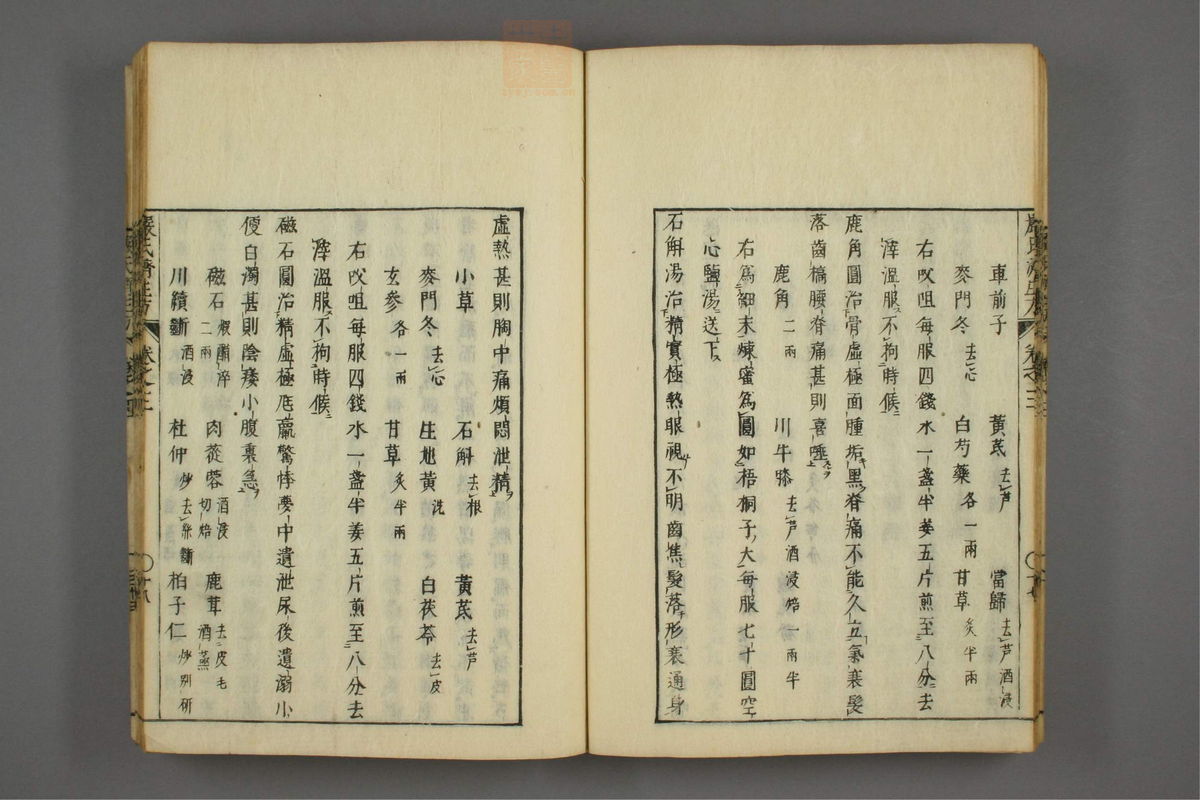 車前子 黃芪去芦 當歸去芦酒浸
麥門冬去心 白芍藥各一兩 甘草炙半兩
右㕮咀每服四錢水一盞半姜五片煎至八分去
滓溫服不拘時候
鹿角圓治骨虛極面腫垢黑脊痛不能久立氣衰髮
落齒槁腰脊痛甚則喜唾
鹿角二兩 川牛膝去芦酒浸焙一兩半
右為細末煉蜜為圓如梧桐子大每服七十圓空
心鹽湯送下
石斛湯治精實極熱眼視不明齒焦髮落形衰通身
虛熱甚則胸中痛煩悶泄精
小草 石斛去根 黃芪去芦
麥門冬去心 生地黃洗 白茯苓去皮
玄參各一兩 甘草炙半兩
右㕮咀每服四錢水一盞半姜五片煎至八分去
滓溫服不拘時候
磁石圓治精虛極尫羸驚悸夢中遺泄尿後遺溺小
便白濁甚則陰痿小腹裏急
磁石二兩煆醋淬 肉蓯蓉酒浸切焙 鹿茸去皮毛酒蒸
川續斷酒浸 杜仲炒去絲斷 柏子仁炒別研